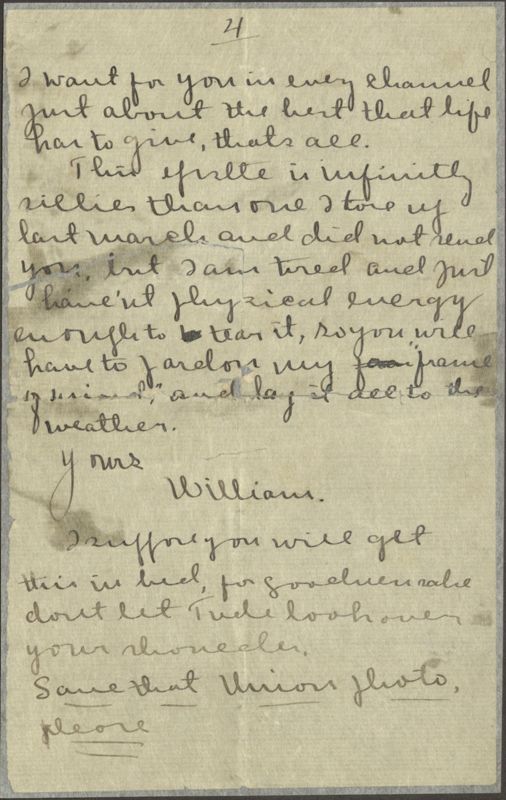 4
I want for you in every channel
just about the best that life
has to give, thats all.
This epistle is infinitly
sillier than one I tore up
last march and did not send
you, but I am tired and just
have'nt physical energy
enough to tear it, so you will
have to pardon my "frame
of mind," and lay it all to the
weather.
Yours
William.
I suppose you will get
this in bed, for goodness sake
dont let Tude look over
your shoulder.
Save that Union photo,
please